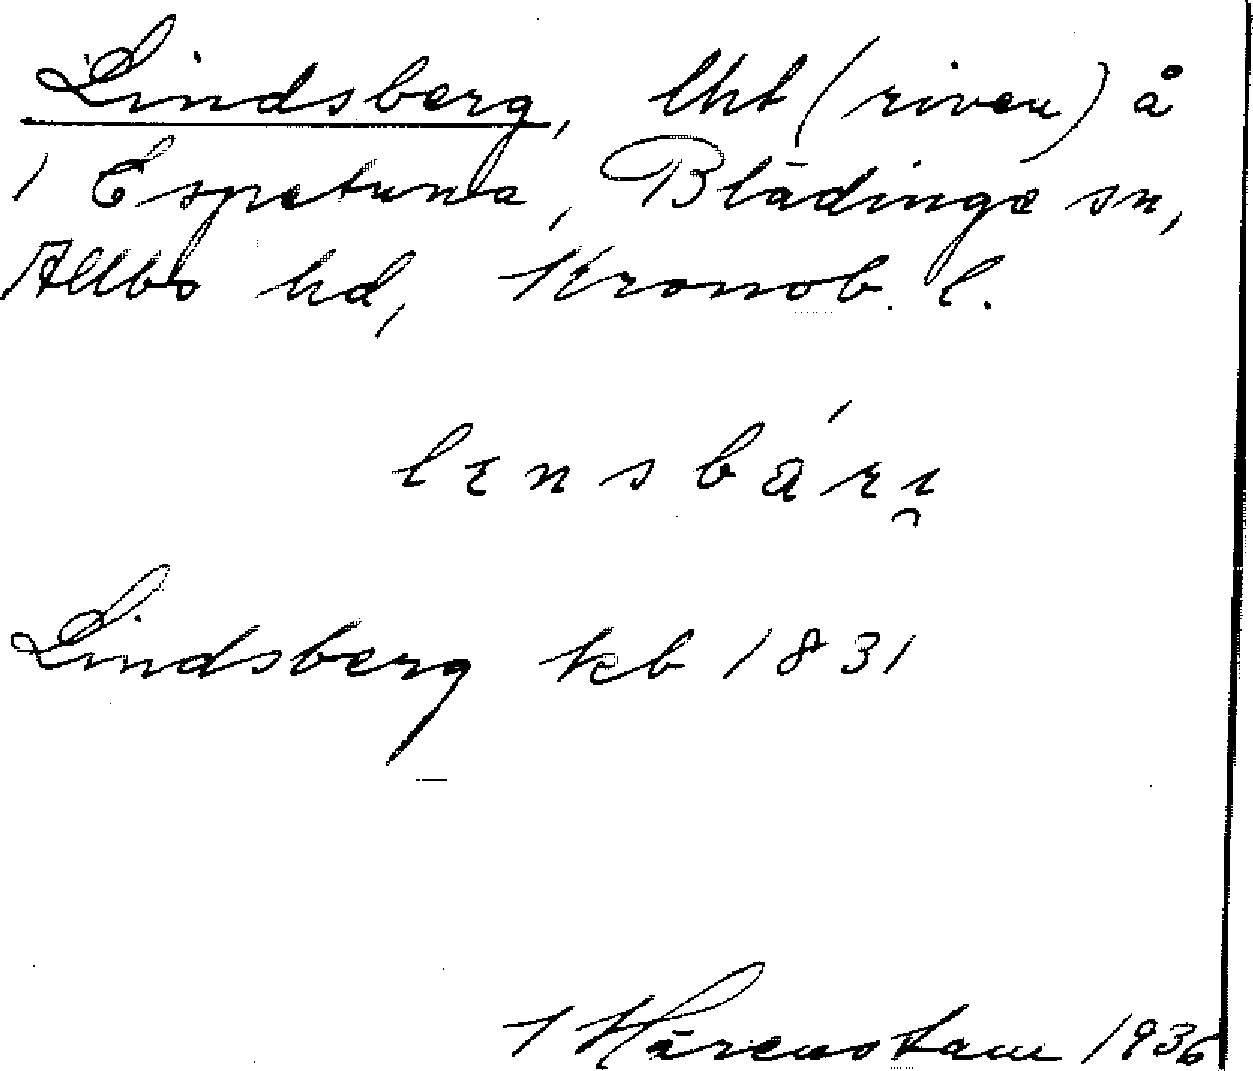 Lindsberg, lht (riven) å
1 Espetuna, Blädinge sn,
Allbo hd, Kronob. l.
lensbári̯
Lindsberg kb 1831
Härenstam 1936